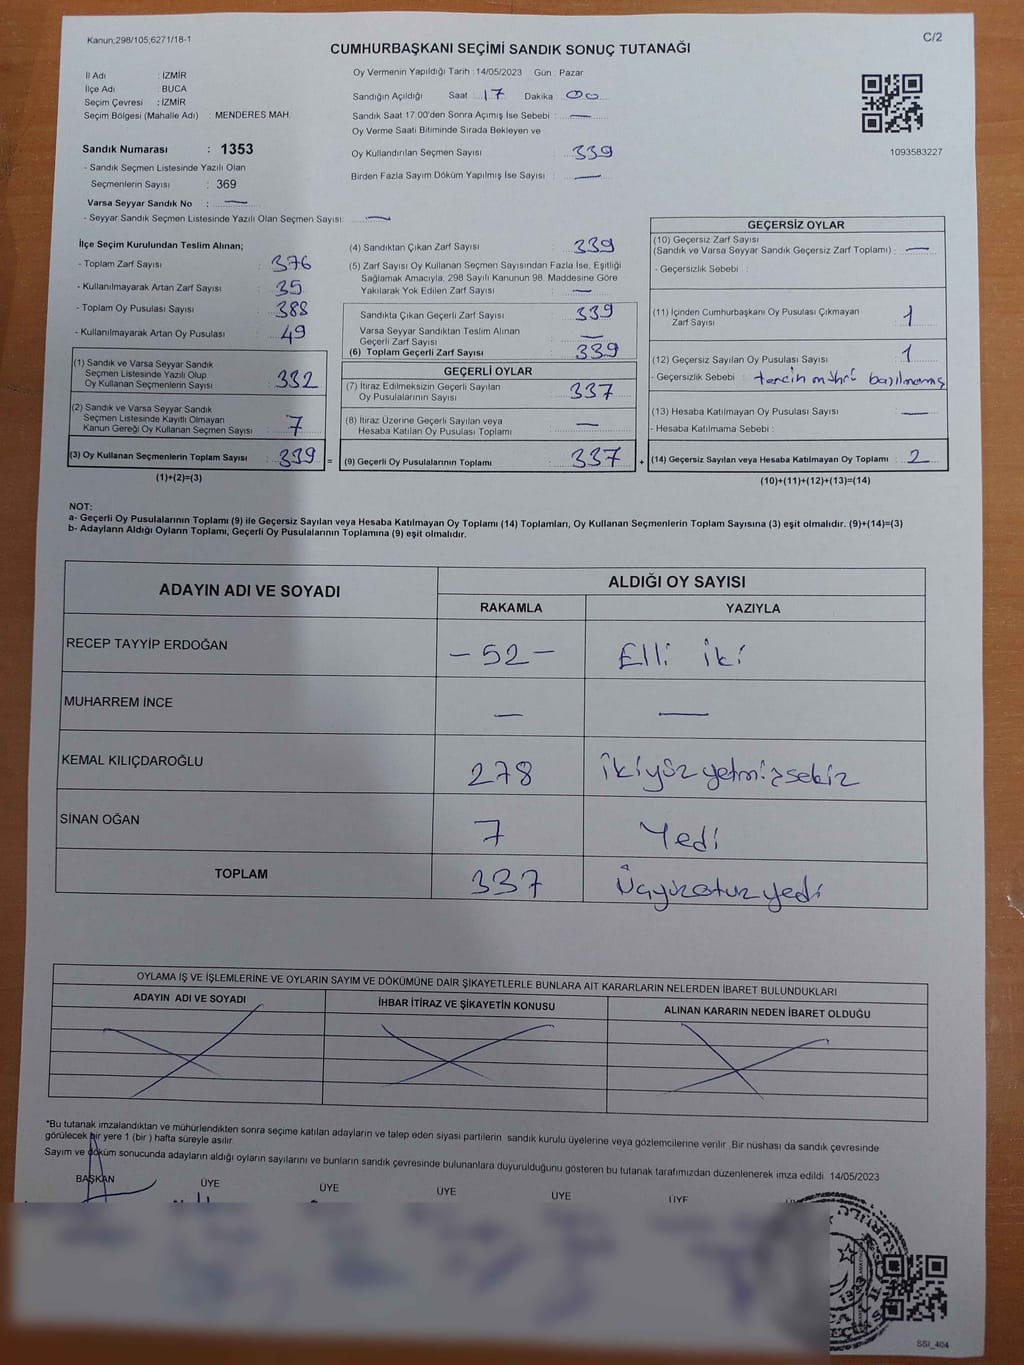 Kanun;298/105,6271/18-1
C/2
CUMHURBAŞKANI SEÇİMİ SANDIK SONUÇ TUTANAĞI
İl Adı : İZMİR
İlçe Adı : BUCA
Seçim Çevresi : İZMİR
Seçim Bölgesi (Mahalle Adı) : MENDERES MAH.
Sandık Numarası : 1353
- Sandık Seçmen Listesinde Yazılı Olan
Seçmenlerin Sayısı : 369
Varsa Seyyar Sandık No : —
- Seyyar Sandık Seçmen Listesinde Yazılı Olan Seçmen Sayısı: —
Oy Vermenin Yapıldığı Tarih : 14/05/2023 Gün : Pazar
Sandığın Açıldığı Saat : 17 Dakika : 00
Sandık Saat 17:00'den Sonra Açımış İse Sebebi : —
Oy Verme Saati Bitiminde Sırada Bekleyen ve
Oy Kullandırılan Seçmen Sayısı : 339
Birden Fazla Sayım Döküm Yapılmış İse Sayısı : —
1093583227
İlçe Seçim Kurulundan Teslim Alınan;
- Toplam Zarf Sayısı : 376
- Kullanılmayarak Artan Zarf Sayısı : 35
- Toplam Oy Pusulası Sayısı : 388
- Kullanılmayarak Artan Oy Pusulası : 49
(1) Sandık ve Varsa Seyyar Sandık
Seçmen Listesinde Yazılı Olup
Oy Kullanan Seçmenlerin Sayısı : 332
(2) Sandık ve Varsa Seyyar Sandık
Seçmen Listesinde Kayıtlı Olmayan
Kanun Gereği Oy Kullanan Seçmen Sayısı : 7
(3) Oy Kullanan Seçmenlerin Toplam Sayısı : 339 =
(1)+(2)=(3)
(4) Sandıktan Çıkan Zarf Sayısı : 339
(5) Zarf Sayısı Oy Kullanan Seçmen Sayısından Fazla İse, Eşitliği
Sağlamak Amacıyla; 298 Sayılı Kanunun 98. Maddesine Göre
Yakılarak Yok Edilen Zarf Sayısı : —
Sandıkta Çıkan Geçerli Zarf Sayısı : 339
Varsa Seyyar Sandıktan Teslim Alınan
Geçerli Zarf Sayısı : —
(6) Toplam Geçerli Zarf Sayısı : 339
GEÇERLİ OYLAR
(7) İtiraz Edilmeksizin Geçerli Sayılan
Oy Pusulalarının Sayısı : 337
(8) İtiraz Üzerine Geçerli Sayılan veya
Hesaba Katılan Oy Pusulası Toplamı : —
(9) Geçerli Oy Pusulalarının Toplamı : 337 +
GEÇERSİZ OYLAR
(10) Geçersiz Zarf Sayısı
(Sandık ve Varsa Seyyar Sandık Geçersiz Zarf Toplamı) : —
- Geçersizlik Sebebi :
(11) İçinden Cumhurbaşkanı Oy Pusulası Çıkmayan
Zarf Sayısı : 1
(12) Geçersiz Sayılan Oy Pusulası Sayısı : 1
- Geçersizlik Sebebi : tercih mührü basılmamış
(13) Hesaba Katılmayan Oy Pusulası Sayısı : —
- Hesaba Katılmama Sebebi :
(14) Geçersiz Sayılan veya Hesaba Katılmayan Oy Toplamı : 2
(10)+(11)+(12)+(13)=(14)
NOT:
a- Geçerli Oy Pusulalarının Toplamı (9) ile Geçersiz Sayılan veya Hesaba Katılmayan Oy Toplamı (14) Toplamları, Oy Kullanan Seçmenlerin Toplam Sayısına (3) eşit olmalıdır. (9)+(14)=(3)
b- Adayların Aldığı Oyların Toplamı, Geçerli Oy Pusulalarının Toplamına (9) eşit olmalıdır.
ADAYIN ADI VE SOYADI ALDIĞI OY SAYISI
RAKAMLA YAZIYLA
RECEP TAYYİP ERDOĞAN - 52 - Elli iki
MUHARREM İNCE — —
KEMAL KILIÇDAROĞLU 278 ikiyüz yetmişsekiz
SİNAN OĞAN 7 Yedi
TOPLAM 337 Üçyüzotuzyedi
OYLAMA İŞ VE İŞLEMLERİNE VE OYLARIN SAYIM VE DÖKÜMÜNE DAİR ŞİKAYETLERLE BUNLARA AİT KARARLARIN NELERDEN İBARET BULUNDUKLARI
ADAYIN ADI VE SOYADI İHBAR İTİRAZ VE ŞİKAYETİN KONUSU ALINAN KARARIN NEDEN İBARET OLDUĞU
*Bu tutanak imzalandıktan ve mühürlendikten sonra seçime katılan adayların ve talep eden siyasi partilerin sandık kurulu üyelerine veya gözlemcilerine verilir. Bir nüshası da sandık çevresinde
görülecek bir yere 1 (bir ) hafta süreyle asılır.
Sayım ve döküm sonucunda adayların aldığı oyların sayılarını ve bunların sandık çevresinde bulunanlara duyurulduğunu gösteren bu tutanak tarafımızdan düzenlenerek imza edildi. 14/05/2023
BAŞKAN ÜYE ÜYE ÜYE ÜYE ÜYE
SSI_404